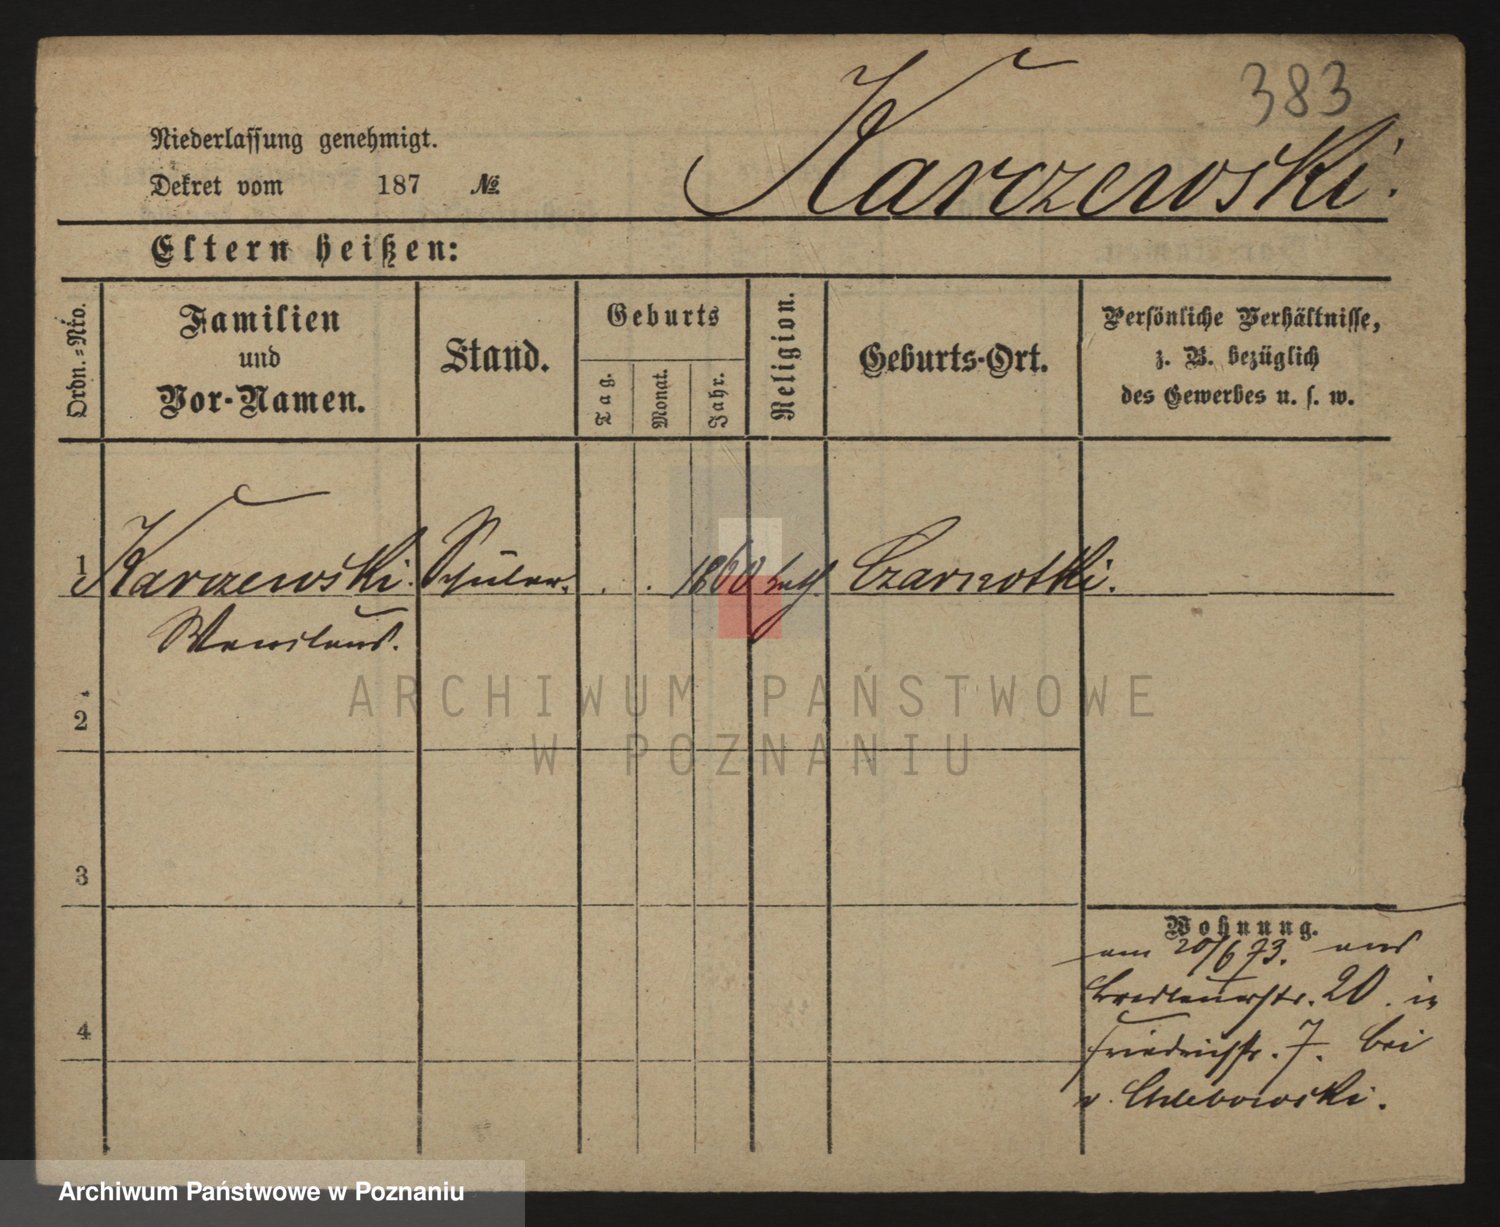 383
Karczewski.
Niederlassung genehmigt.
Dekret vom 187 №
Eltern heißen:
Ordn.=Nro.
Familien
und
Vor-Namen.
Stand.
Geburts
Tag.
Monat.
Jahr.
Religion.
Geburts-Ort.
Persönliche Verhältnisse,
z. B. bezüglich
des Gewerbes u. s. w.
1 Karczewski. Schüler. . . 1860 kath. Czarnotki.
Wenzlaus.
ARCHIWUM PAŃSTWOWE
W POZNANIU
2
3
4
Wohnung.
am 20/6 73. aus
Breslauerstr. 20. in
Friedrichstr. 7. bei
v. Chlebowski.
Archiwum Państwowe w Poznaniu